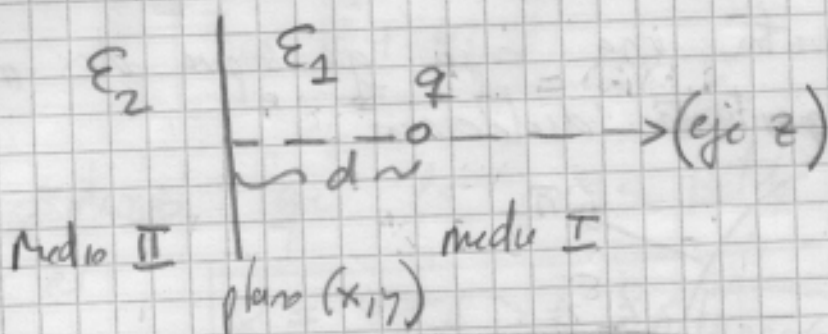 ε₂ ε₁
q
(eje z)
d
Medio II medio I
plano (x,y)